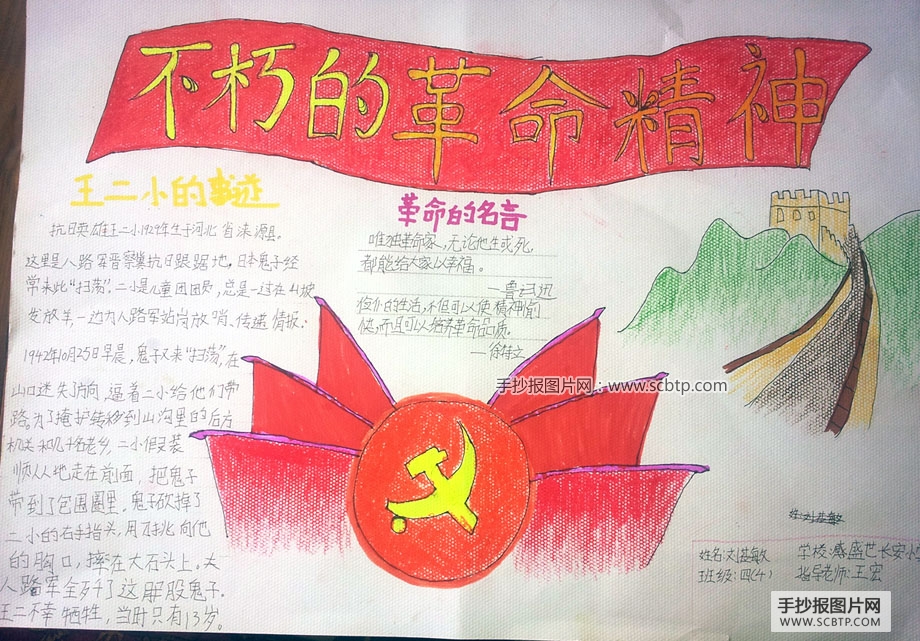 不朽的革命精神
王二小的事迹
抗日英雄王二小1929年生于河北省涞源县。
这里是八路军晋察冀抗日跟踞地。日本鬼子经
常来此“扫荡”,二小是儿童团团员,总是一边在山坡
发放羊,一边为八路军站岗放哨、传递情报;
1942年10月25日早晨,鬼子又来“扫荡”,在
山口迷失方向,逼着二小给他们带
路。为了掩护转移到山沟里的后方
机关和几十名老乡,二小假装
顺从地走在前面,把鬼子
带到了包围圈里,鬼子砍掉了
二小的右手指头,用刀挑向他
的胸口,摔在大石头上,
八路军全歼了这股鬼子.
王二不幸牺牲,当时只有13岁。
革命的名言
唯独革命家,无论他生或死,
都能给大家以幸福。
—鲁迅
俭朴的生活,不但可以使精神愉
快,而且可以培养革命品质。
—徐特立
手抄报图片网:www.scbtp.com
姓名:刘甚敏 学校:盛世长安小
班级:四(4) 指导老师:王宏
手抄报图片网
WWW.SCBTP.COM